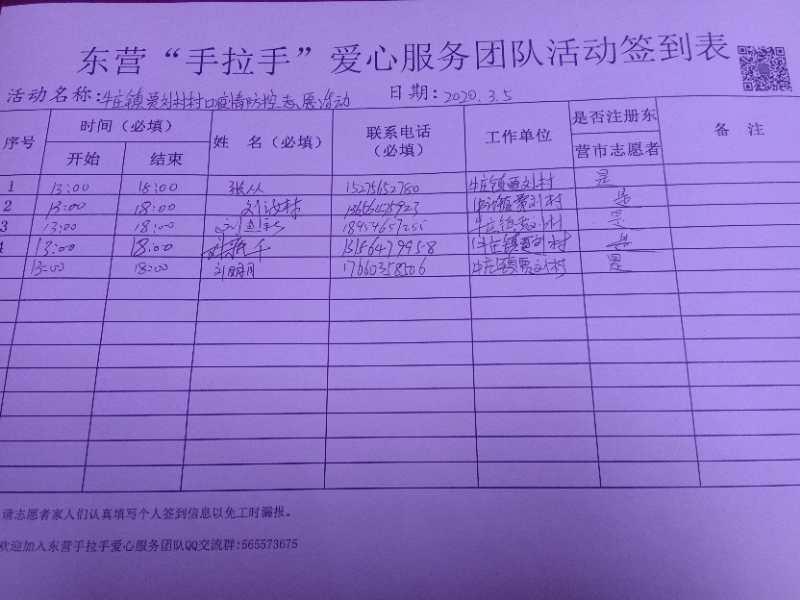 东营“手拉手”爱心服务团队活动签到表
活动名称:牛庄镇贾刘村村口疫情防控志愿活动 日期:2020.3.5
序号 时间（必填） 姓 名（必填） 联系电话（必填） 工作单位 是否注册东营市志愿者 备 注
开始 结束
1 13:00 18:00 张从 15275652780 牛庄镇贾刘村 是
2 13:00 18:00 牛庄镇贾刘村 是
3 13:00 18:00 牛庄镇贾刘村 是
4 13:00 18:00 牛庄镇贾刘村 是
13:00 18:00 刘明月 17660358506 牛庄镇贾刘村 是
请志愿者家人们认真填写个人签到信息以免工时漏报。
欢迎加入东营手拉手爱心服务团队QQ交流群:565573675